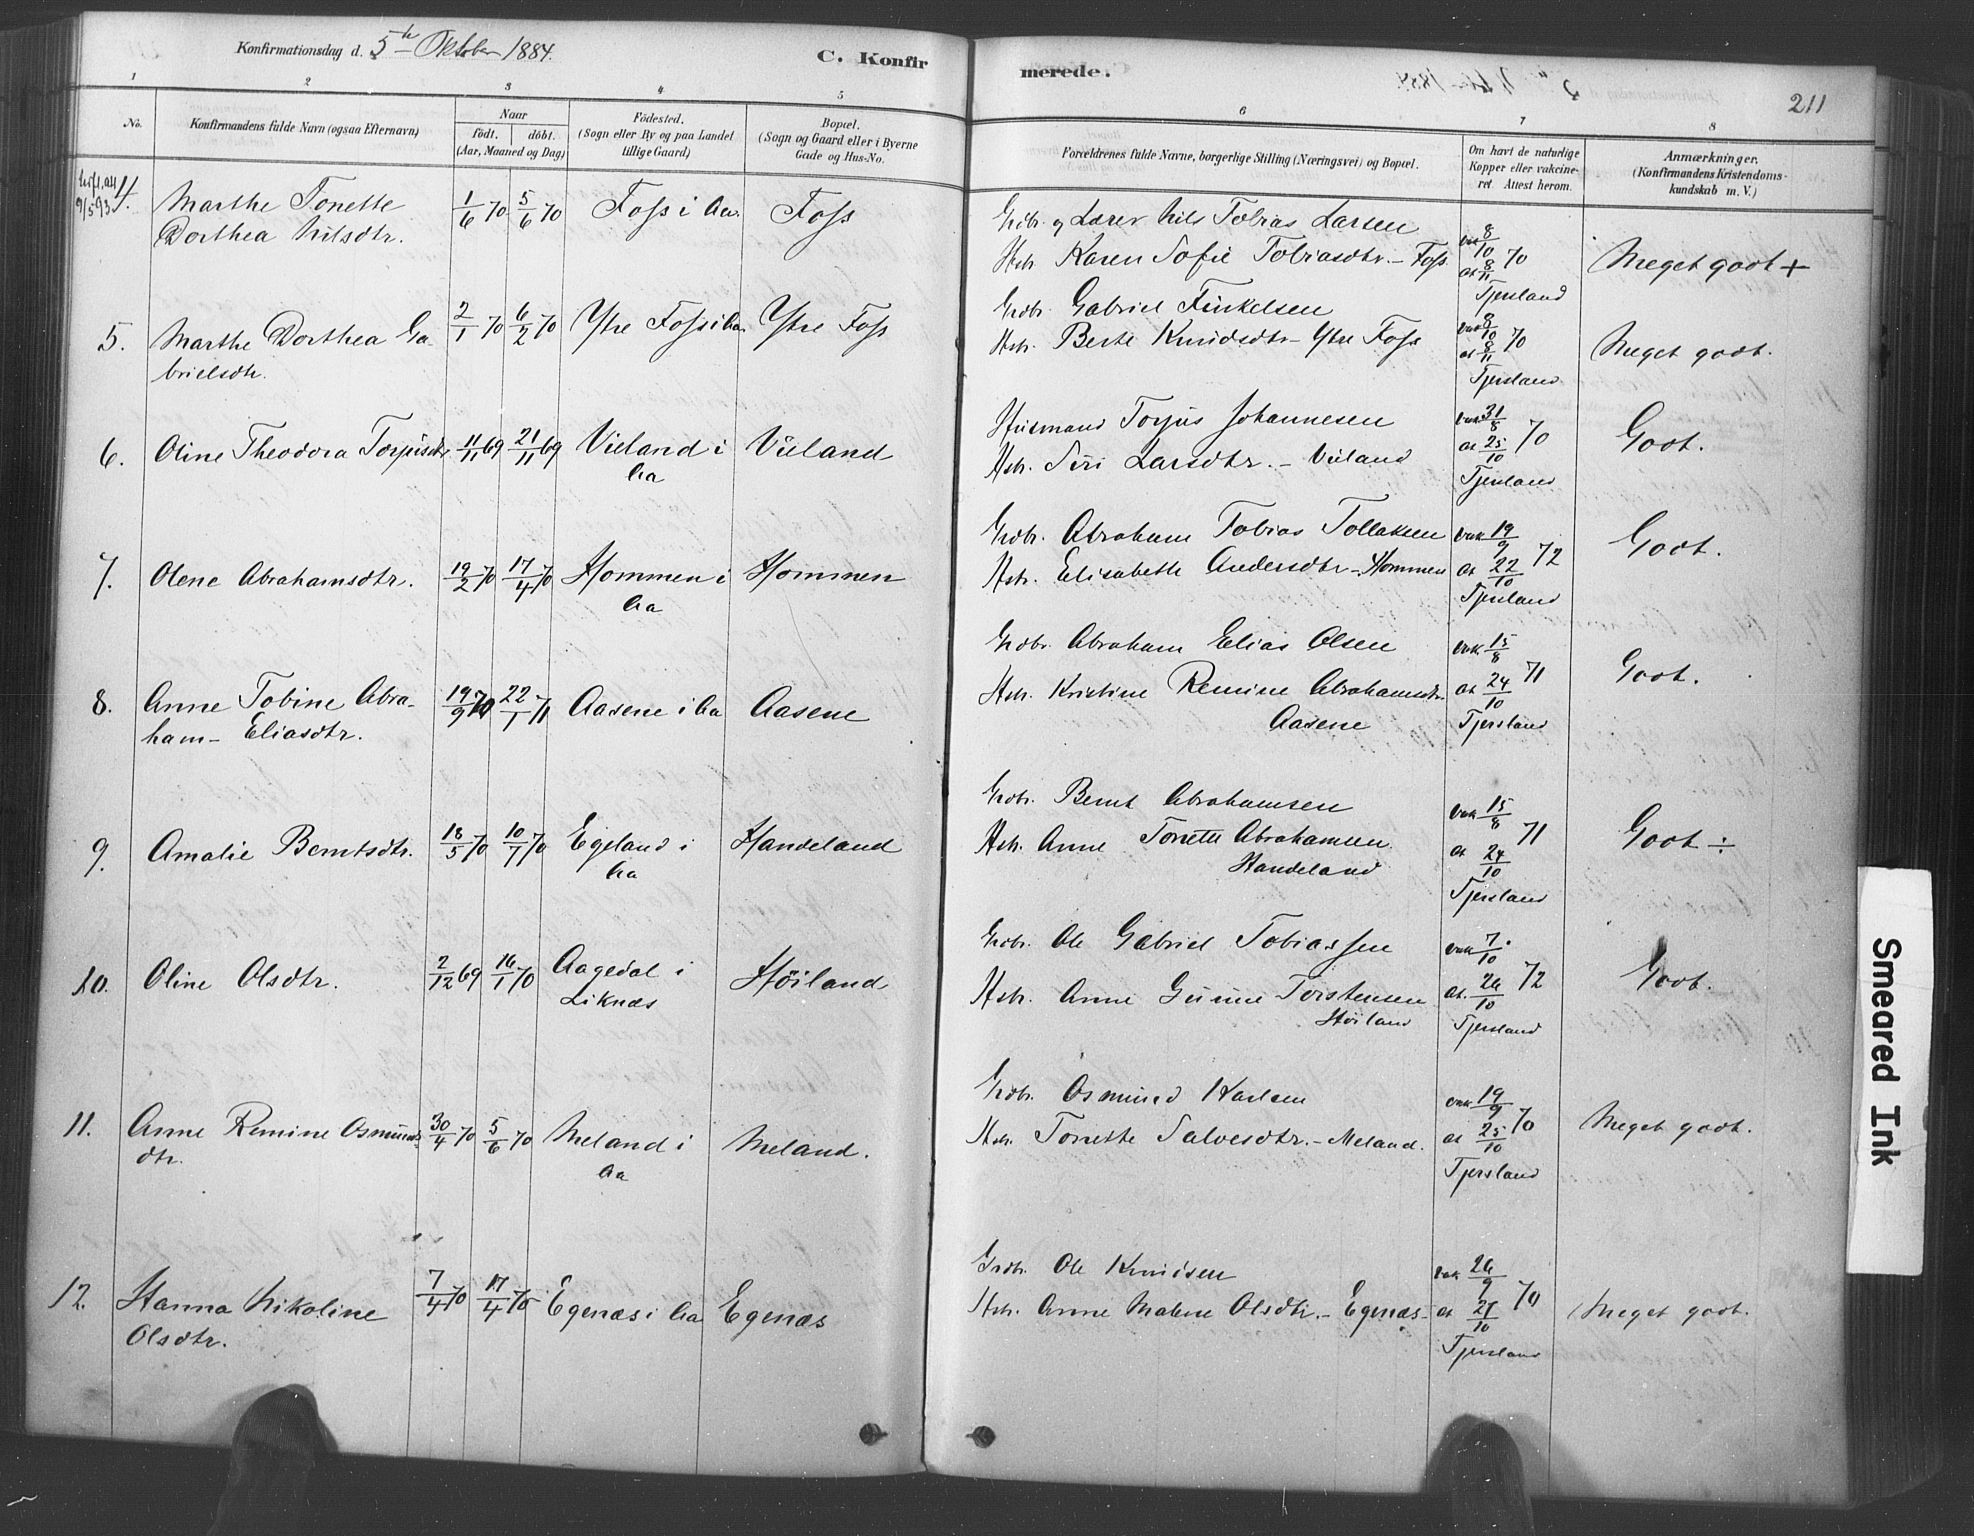 Konfirmationsdag d. 5te Oktober 1884.
C. Konfir
merede.
211
1 2 3 4 5 6 7 8
No.
Konfirmandens fulde Navn (ogsaa Efternavn)
Naar
födt. döbt.
(Aar, Maaned og Dag)
Födested.
(Sogn eller By og paa Landet
tillige Gaard)
Bopæl.
(Sogn og Gaard eller i Byerne
Gade og Hus-No.
Forældrenes fulde Navne, borgerlige Stilling (Næringsvei) og Bopæl.
Om havt de naturlige
Kopper eller vakcine-
ret. Attest herom.
Anmærkninger.
(Konfirmandens Kristendoms-
kundskab m. V.)
9/5 93
4. Marthe Tonette
Dorthea Nilsdtr.
1/6 70 5/6 70 Foss i Aa. Foss
Grdbr. og Lærer Nils Tobias Larsen
Hstr. Karen Sofie Tobiasdtr. - Foss
vak 8/10 at 8/11 70
Tjersland
Meget godt +
5. Marthe Dorthea Ga-
brielsdtr.
2/1 70 6/2 70 Ytre Foss i Aa. Ytre Foss
Grdbr. Gabriel Finkelsen
Hstr. Berte Knudsdtr - Ytre Foss
vak 8/10 at 8/11 70
Tjersland
Meget godt.
6. Oline Theodora Torjusdtr. 11/11 69 21/11 69 Vieland i
Aa
Vieland
Husmand Torjus Johannesen
Hstr. Siri Larsdtr. - Vieland
vak 31/8 at 25/10 70
Tjersland
Godt.
7. Olene Abrahamsdtr. 19/2 70 17/4 70 Hommen i
Aa
Hommen
Grdbr. Abraham Tobias Tollaksen
Hstr. Elisabeth Andersdtr - Hommen
vak 19/9 at 22/10 72
Tjersland
Godt.
8. Anne Tobine Abra-
ham-Eliasdtr.
19/9 70 22/1 71 Aasene i Aa Aasene
Grdbr. Abraham Elias Olsen
Hstr. Kristine Remine Abrahamsdtr.
Aasene
vak. 15/8 at 24/10 71
Tjersland
Godt.
9. Amalie Berntsdtr. 18/5 70 10/7 70 Egeland i
Aa
Handeland
Grdbr. Bernt Abrahamsen
Hstr. Anne Tonette Abrahamsen
Handeland
vak 15/8 at 24/10 71
Tjersland
Godt ÷
10. Oline Olsdtr. 2/12 69 16/1 70 Aagedal i
Liknæs
Höiland
Grdbr. Ole Gabriel Tobiassen
Hstr. Anne Gurine Torstensen
Höiland
vak 7/10 at. 26/10 72
Tjersland
Godt.
11. Anne Remine Osmunds-
dtr.
30/4 70 5/6 70 Meland i
Aa
Meland.
Grdbr. Osmund Karlsen
Hstr. Tonette Salvesdtr. - Meland.
vak 19/9 at 25/10 70
Tjersland
Meget godt.
12. Hanna Nikoline
Olsdtr.
7/4 70 17/4 70 Egenæs i Aa Egenæs
Grdbr. Ole Knudsen
Hstr. Anne Malene Olsdtr. - Egenæs -
vak 26/9 at 27/10 70
Tjersland
Meget godt.
Smeared Ink